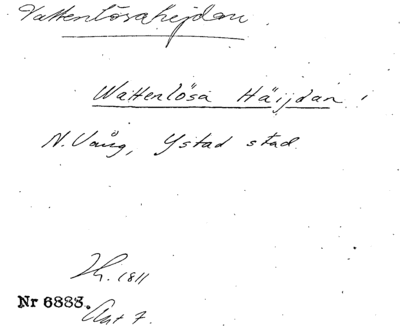 Vattenlösahejdan
Wattenlösa Häijdan
N. Vång, Ystad stad
Nr 6888.
Akt 7.